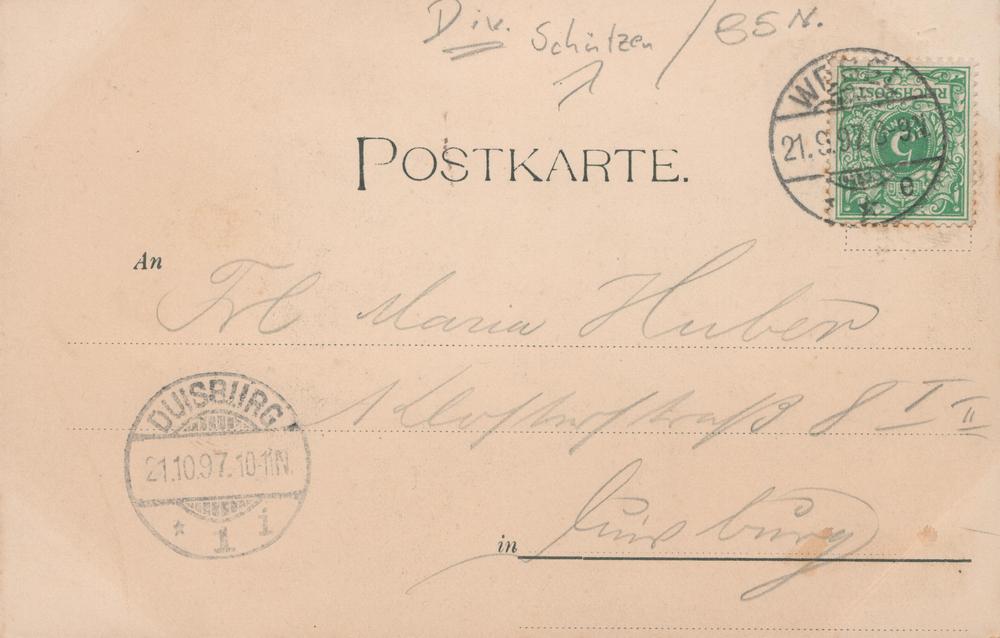 Div. Schützen / 85 N.
POSTKARTE.
REICHSPOST
5
21.9.97. 8-9N
c
An Frl Maria Huber
8 I
II
in Duisburg
DUISBURG
21.10.97.10-11N.
* 1 i